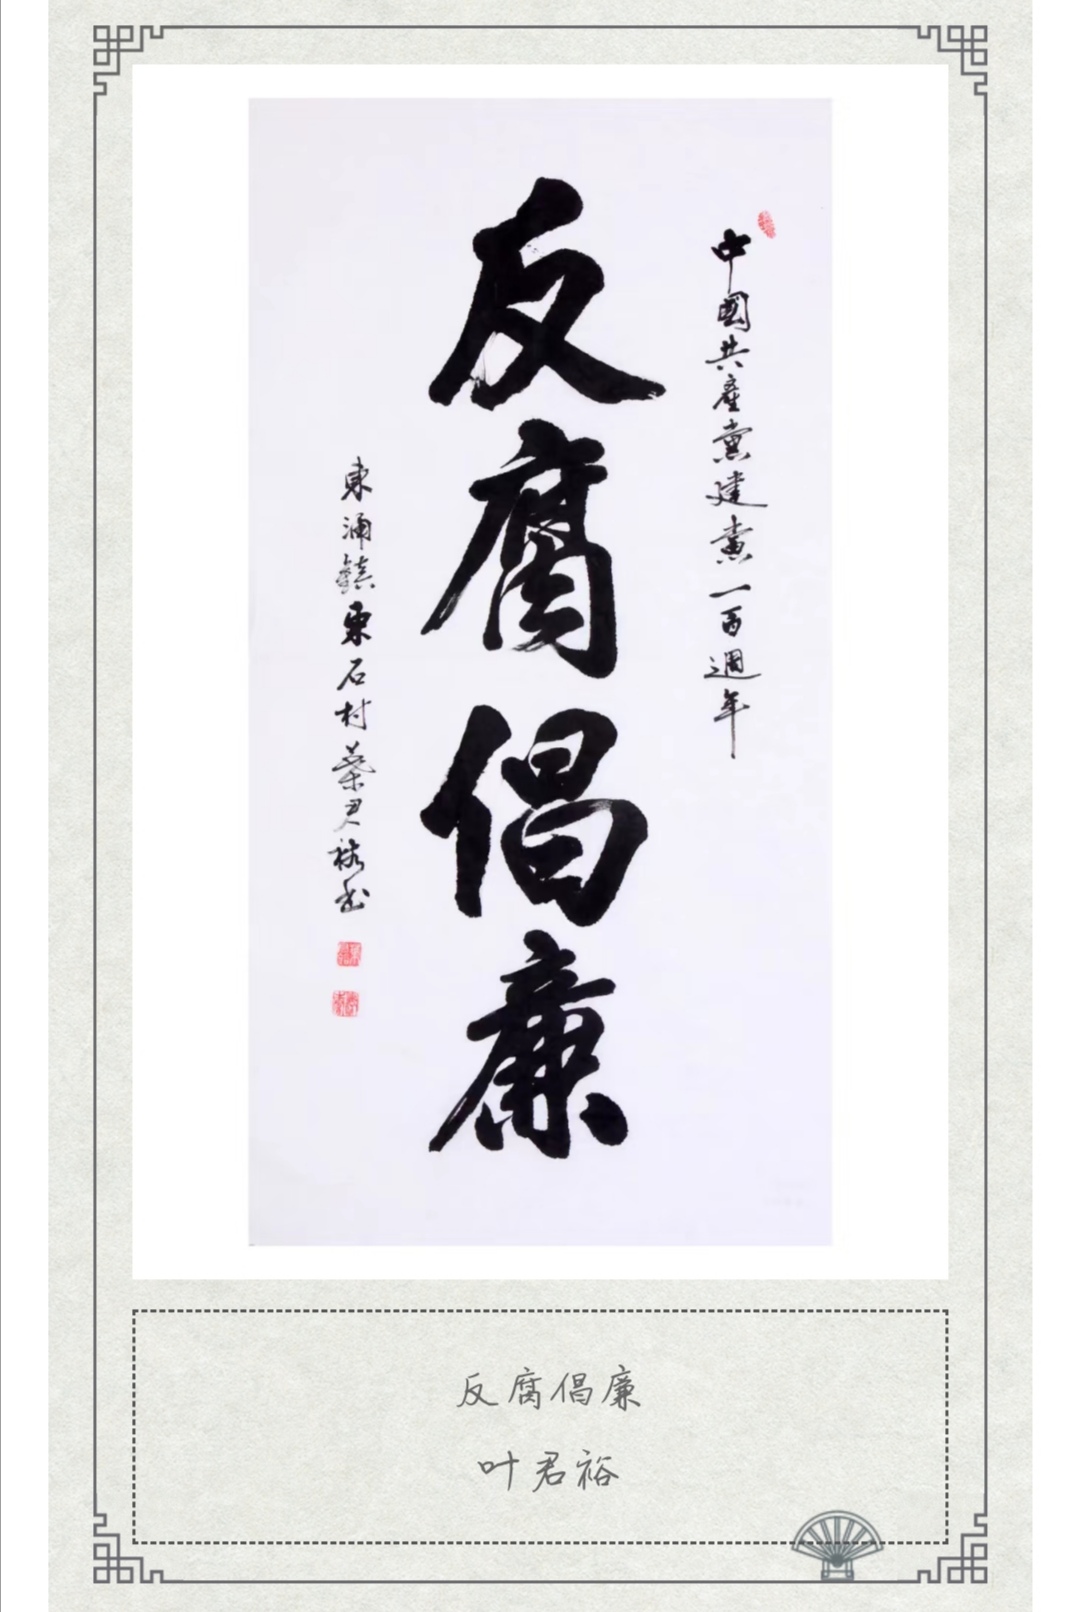 中國共產黨建黨一百週年
反腐倡廉
東涌鎮東石村葉君裕書
反腐倡廉
叶君裕